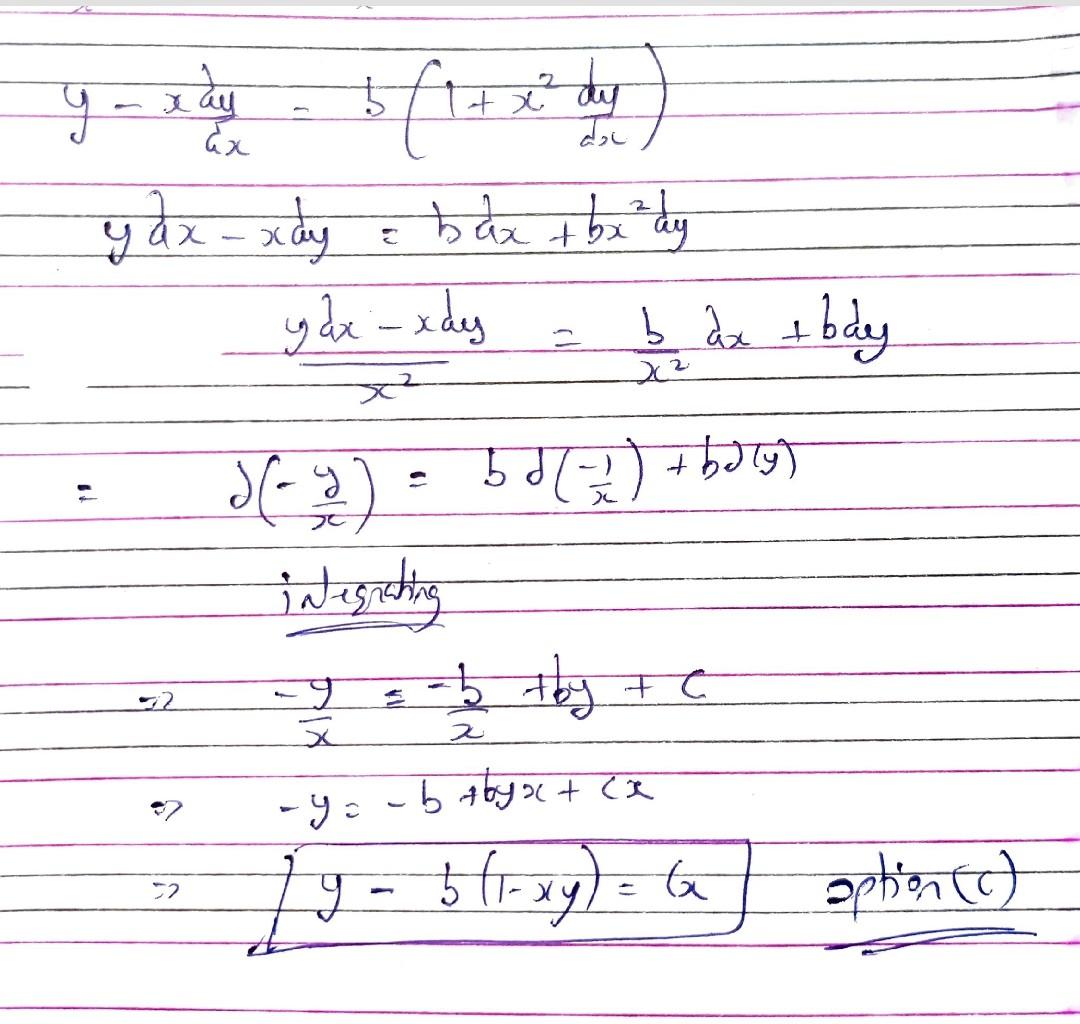 y - x dy/dx = b (1 + x² dy/dx)
y dx - x dy = b dx + bx² dy
(y dx - x dy)/x² = b/x² dx + b dy
= d(-y/x) = b d(-1/x) + b d(y)
integrating
=> -y/x = -b/x + by + C
=> -y = -b + byx + cx
=> y - b(1-xy) = Cx option (C)